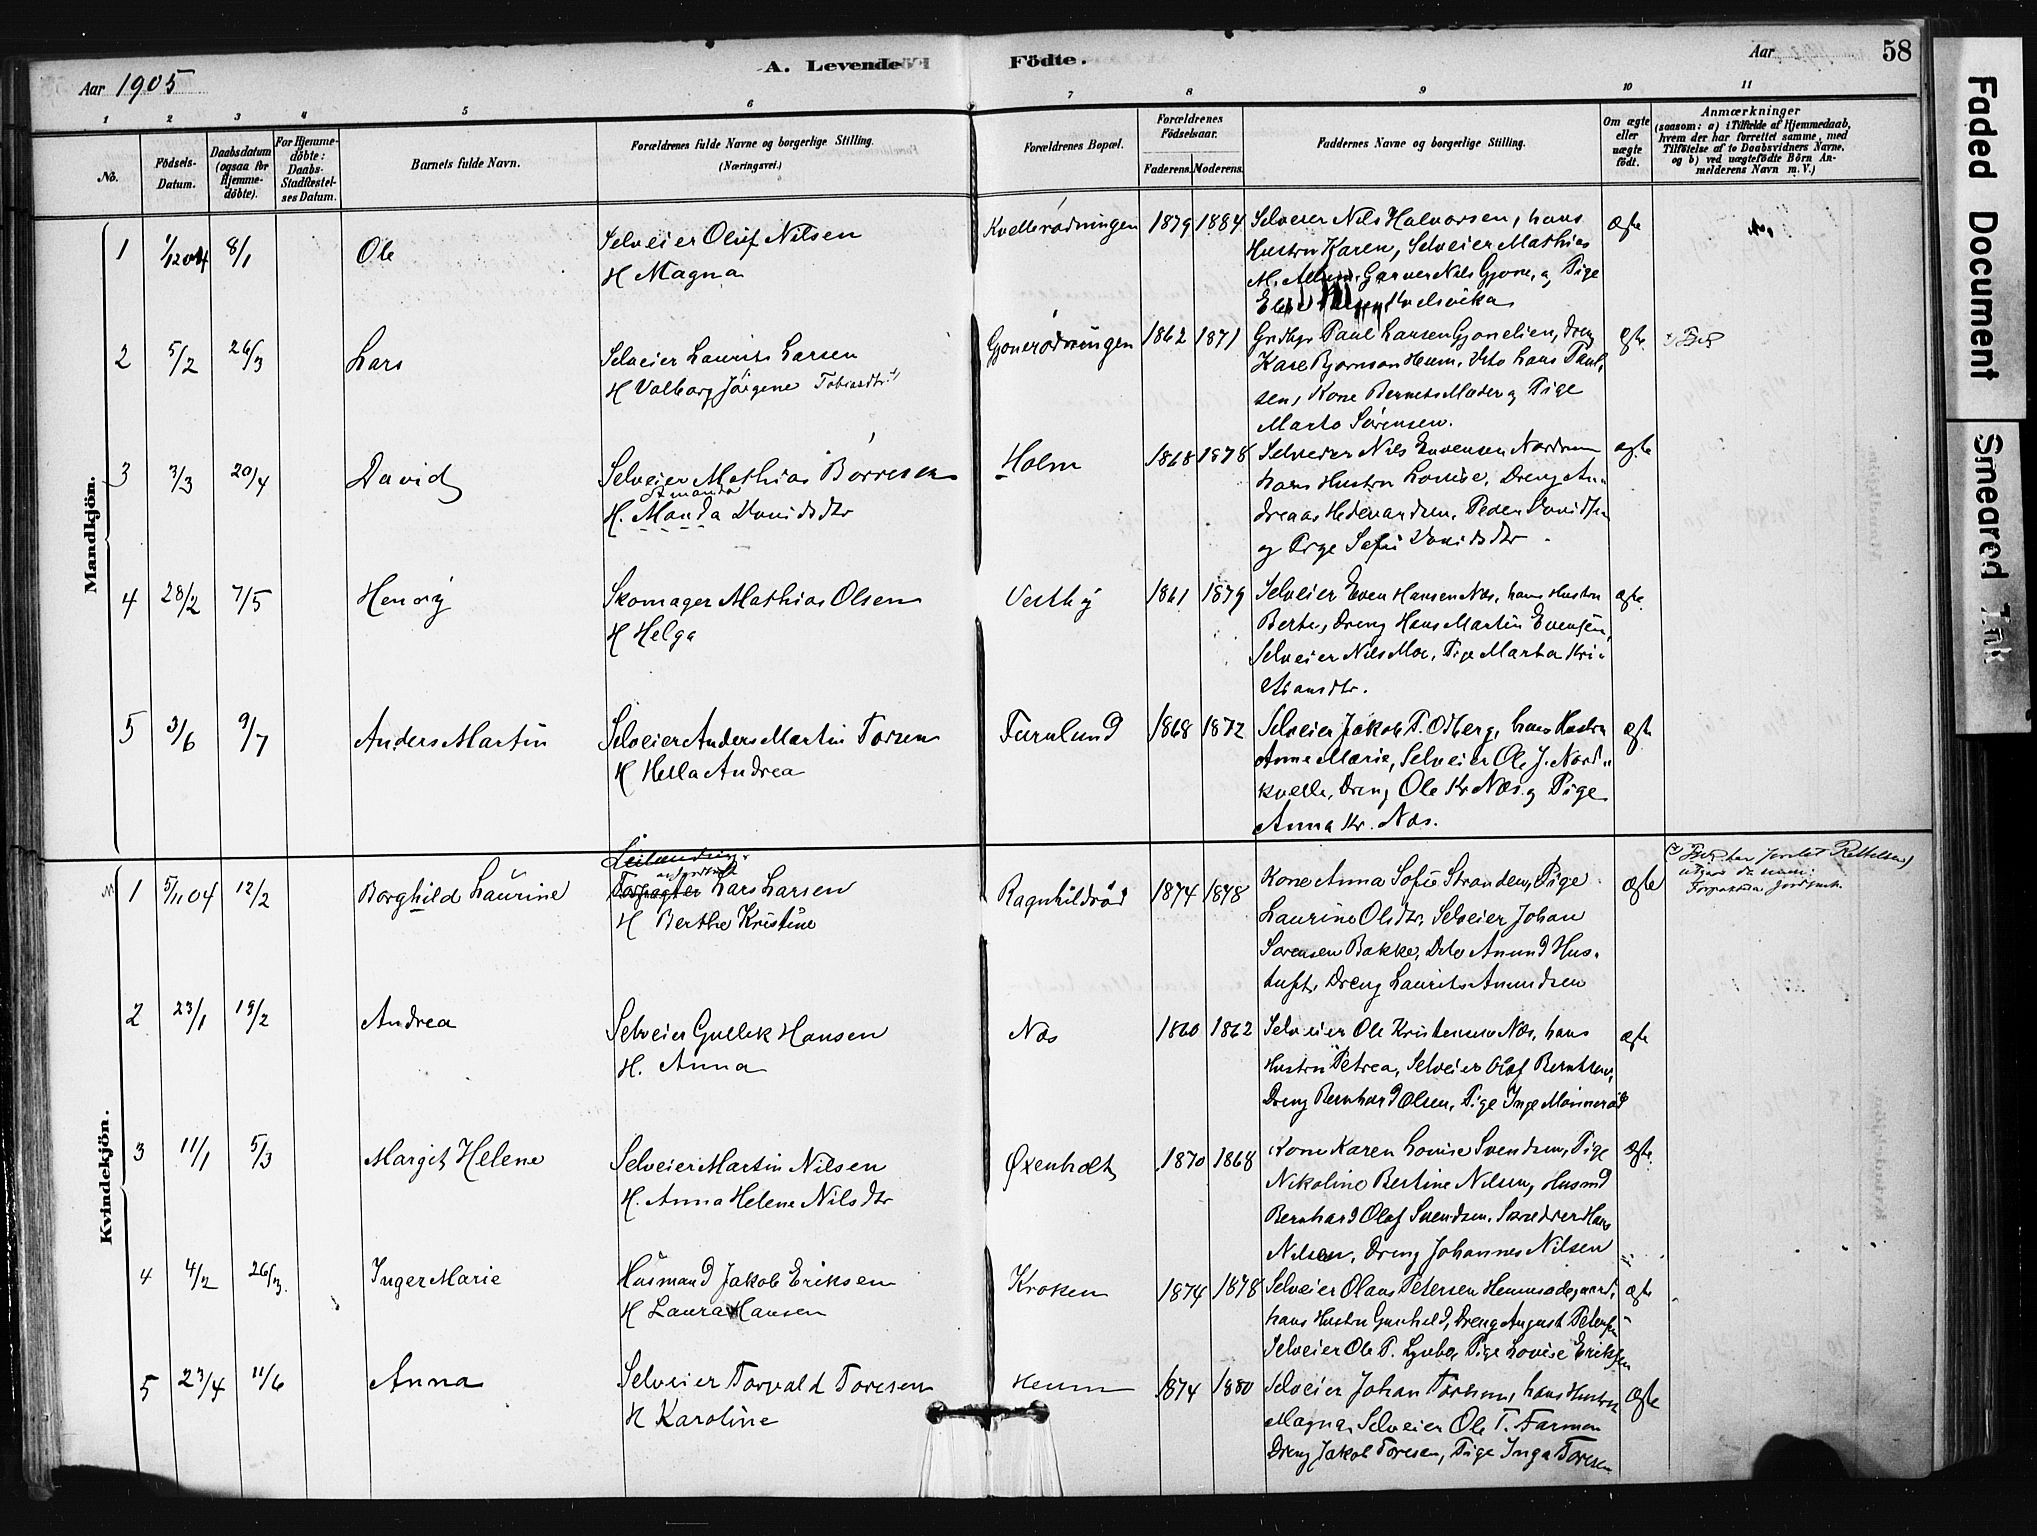 Aar 1905
A. Levende Födte.
Aar
58
1 2 3 4 5 6 7 8 9 10 11
No.
Födsels-Datum.
Daabsdatum (ogsaa for Hjemmedöbte).
For Hjemmedöbte: Daabs-Stadfæstelses Datum.
Barnets fulde Navn.
Forældrenes fulde Navne og borgerlige Stilling. (Næringsvei.)
Forældrenes Bopæl.
Forældrenes Födselsaar.
Faderens. Moderens.
Faddernes Navne og borgerlige Stilling.
Om ægte eller uægte födt.
Anmærkninger
(saasom: a) i Tilfælde af Hjemmedaab, hvem der har forrettet samme, med Tilföielse af to Daabsvidners Navne, og b) ved uægtefödte Börn Anmelderens Navn m. V.)
Mandkjön.
1 1/12 04 8/1 Ole
Selveier Oluf Nilsen
H Magna
Kvellerödningen 1879 1884
Selveier Nils Halvorsen, hans
Hustru Karen, Selveier Mathias
Garver Nils Gjone, og Pige
ægte
2 5/2 26/3 Lars
Selveier Laurits Larsen
H Valborg Jörgine Tobiasdtr.
Gjonerödningen 1862 1871
Paul Larsen Gjonelien, Dreng
Kare Bjornson Heum, Dito Lars Paul-
sen, Kone Pige
Marta Sörensen.
ægte
3 3/3 20/4 David
Selveier Mathias Börresen
Amanda
H. Manda Davidsdtr
Holm 1868 1878
Selveier Nils Evensen Nordrum
hans Hustru Louise, Dreng An-
dreas Hedevardsen, Peder Davidsen
og Pige Sofie Davidsdtr.
ægte
4 28/2 7/5 Henrig
Skomager Mathias Olsen
H Helga
Vestby 1861 1879
Selveier Even Hansen Næs, hans Hustru
Berte, Dreng Hans Martin Evensen,
Selveier Nils Moe, Pige Marta Kri-
stiansdtr.
ægte.
5 3/6 9/7 Anders Martin
Selveier Anders Martin Torsen
H Hella Andrea
Furulund 1868 1872
Selveier Jakob T. Odberg, hans Hustru
Anne Marie, Selveier Ole J. Nord-
kvelle, Dreng Ole Kr Næs og Pige
Anna Kr. Næs.
ægte
Kvindekjön.
1 5/11 04 12/2 Borghild Laurine
Leilænding
Forpagter Lars Larsen
H Berthe Kristine
Ragnhildröd 1874 1878
Kone Anna Sofie Stranden, Pige
Laurine Olsdtr, Selveier Johan
Sorensen Bakke, Dito Amund Hus-
tuft, Dreng Laurits Amundsen
ægte
2 23/1 19/2 Andrea
Selveier Gullik Hansen
H. Anna
Næs 1860 1862
Selveier Ole Kristensen Næs, hans
Hustru Petrea, Selveier Olaf Berntsen,
Dreng Bernhard Olsen, Pige Inge Mönneröd
ægte
3 11/1 5/3 Margit Helene
Selveier Martin Nilsen
H. Anna Helene Nilsdtr
Øxenholt 1870 1868
Kone Karen Lovise Svendsen, Pige
Nikoline Bertine Nilsen, Husmand
Bernhard Olaf Svendsen, Skrædder Hans
Nilsen, Dreng Johannes Nilsen
ægte.
4 4/2 26/3 Inger Marie
Husmand Jakob Eriksen
H Laura Hansen
Kroken 1874 1878
Selveier Olaus Petersen Heumsodegaard,
hans Hustru Gunhild, Dreng August Petersen
Selveier Ole P. Lysebo, Pige Lovise Eriksen
ægte
5 23/4 11/6 Anna
Selveier Torvald Toresen
H Karoline
Heum 1874 1880
Selveier Johan Toresen, hans Hustru
Magna, Selveier Ole T. Farmen
Dreng Jakob Toresen, Pige Inga Toresen
ægte
Faded Document
Smeared Ink